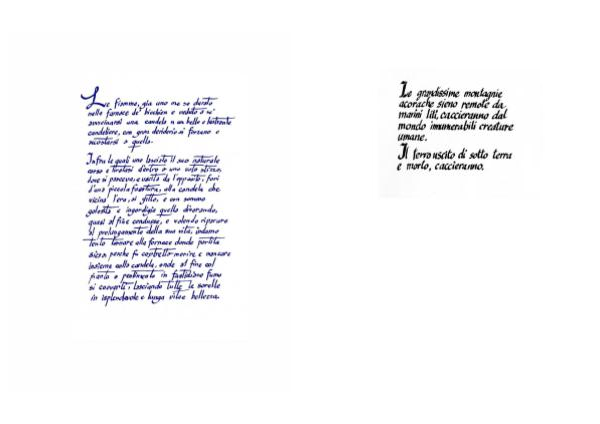 Le fiamme, già uno me se durato
nelle fornace de' bicchieri e veduto a sé
avvicinarsi una candela in un bello e
candeliere, con gran desiderio si forzano
accostarsi a quello.
Infra le quali una lasciato il suo naturale
corso e tiratasi dentro a uno voto stizzo,
dove si pasceva, e uscita da l'opposito, fori
d'una piccola fessura, alla candela che
vicina l'era, si gittò, e con somma
golosità e ingordigia quella divorando,
quasi al fine condusse, e volendo riparare
al prolungamento della sua vita, indarno
tentò tornare alla fornace donde partita
s'era, perché fu costretta morire e mancare
insieme colla candela, onde al fine col
pianto e pentimento in fastidioso fumo
si convertì, lasciando tutte le sorelle
in isplendevole e lunga vita e bellezza.
Le grandissime montagnie
ancorache sieno remote da
marini liti, caccieranno dal
mondo innumerabili creature
umane.
Il ferro uscito di sotto terra
e morto, caccieranno.